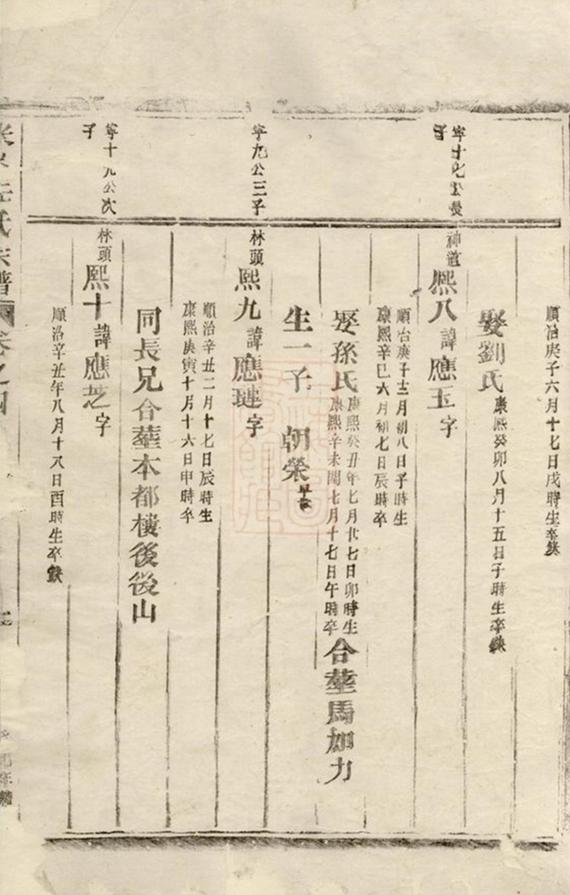 順治庚子六月十七日戌時生卒缺
娶劉氏
康熙癸卯八月十五日子時生卒缺
寧十七公長
子
神道
熙八諱應玉字
順治庚子十二月初八日子時生
康熙辛巳六月初七日辰時卒
娶孫氏
康熙癸丑年七月廿七日卯時生
康熙辛未閏七月十七日午時卒
合塟馬加力
生一子 朝榮
早卒
寧九公三子
林頭
熙九諱應璉字
順治辛丑二月十七日辰時生
康熙庚寅十月十六日申時卒
同長兄合塟本都樓後後山
寧十九公次
子
林頭
熙十諱應芝字
順治辛丑年八月十八日酉時生卒缺
氏宗譜
卷之四